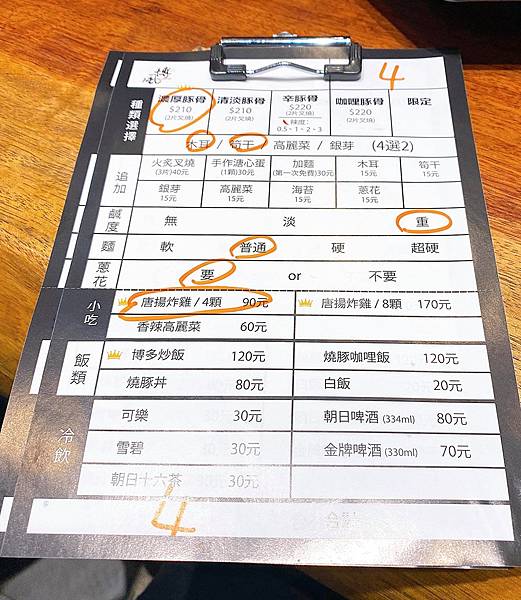 4
種類選擇
濃厚豚骨 清淡豚骨 辛豚骨 咖哩豚骨 限定
$210 $210 $220 $220
(2片叉燒) (2片叉燒) 辣度: (2片叉燒)
0.5、1、2、3
木耳 / 筍干 / 高麗菜 / 銀芽 (4選2)
追加
火炙叉燒 手作溏心蛋 加麵 木耳 筍干
(3片)40元 (1顆)30元 (第一次免費)30元 15元 15元
銀芽 高麗菜 海苔 蔥花
15元 15元 15元 15元
鹹度 無 淡 重
麵 軟 普通 硬 超硬
蔥花 要 or 不要
小吃
唐揚炸雞 / 4顆 90元 唐揚炸雞 / 8顆 170元
香辣高麗菜 60元
飯類
博多炒飯 120元 燒豚咖哩飯 120元
燒豚丼 80元 白飯 20元
冷飲
可樂 30元 朝日啤酒 (334ml) 80元
雪碧 30元 金牌啤酒 (330ml) 70元
朝日十六茶 30元
4